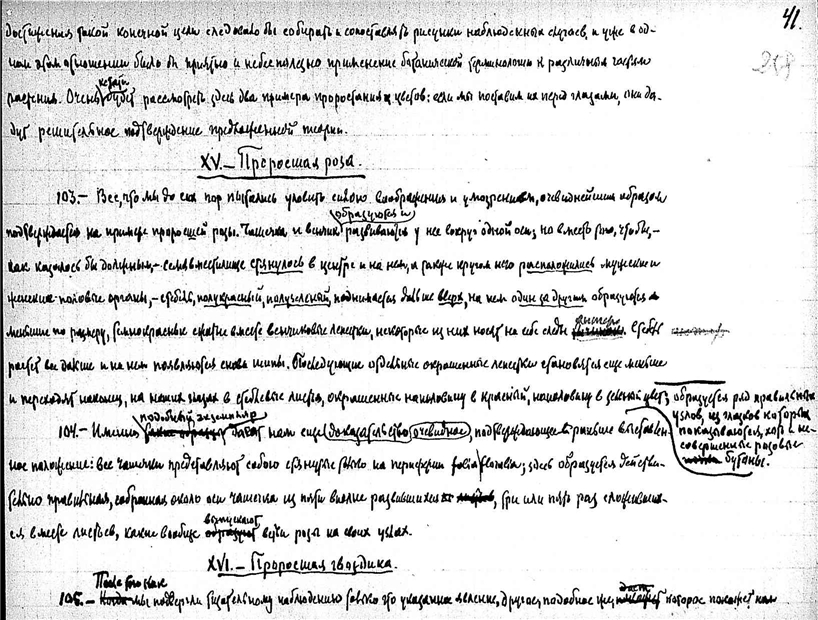 41.
достижения такой конечной цели следовало бы собирать и сопоставлять рисунки наблюденных случаев, и уже в од-
ном этом отношении было бы приятно и небесполезно применение ботанической терминологии к различным частям
растения. Очень кстати будет рассмотреть здесь два примера проростания цветов: если мы поставим их перед глазами, они да-
дут решительное подтверждение предложенной теории.
XV.— Проросшая роза.
103.— Все, что мы до сих пор пытались уловить силою воображения и умозрением, очевиднейшим образом
образуются и
подтверждается на примере проросшей розы. Чашечка и венчик развиваются у нее вокруг одной оси; но вместо того, чтобы,—
как казалось бы должным,— семявместилище стянулось в центре и на нем, а также кругом него расположились мужские и
женские половые органы,— стебель, полукрасный, полузеленый, поднимается дальше вверх, на нем один за другим образуются
меньшие по размеру, темнокрасные сжатые вместе венчиковые лепестки, некоторые из них носят на себе следы Стебель
растет все дальше и на нем появляются снова шипы. Последующие отдельные окрашенные лепестки становятся еще меньше
и переходят наконец, на наших глазах в стеблевые листья, окрашенные наполовину в красный, наполовину в зеленый цвет; образуется ряд правильных
узлов, из глазков которых
показываются, хотя и не-
совершенные розовые
бутоны.
подобный экземпляр
104.— Именно дает нам еще доказательство очевидное, подтверждающее раньше выставлен-
ное положение: все чашечки представляют собою стянутые только на периферии folia floralia; здесь образуется действи-
тельно правильная, собранная около оси чашечка из пяти вполне развившихся три или пять раз сложенных
вместе листьев, какие вообще выпускают ветви розы на своих узлах.
XVI.— Проросшая гвоздика.
После того как
105.— мы подвергли тщательному наблюдению только что указанное явление, другое, подобное же, даст которое покажет нам